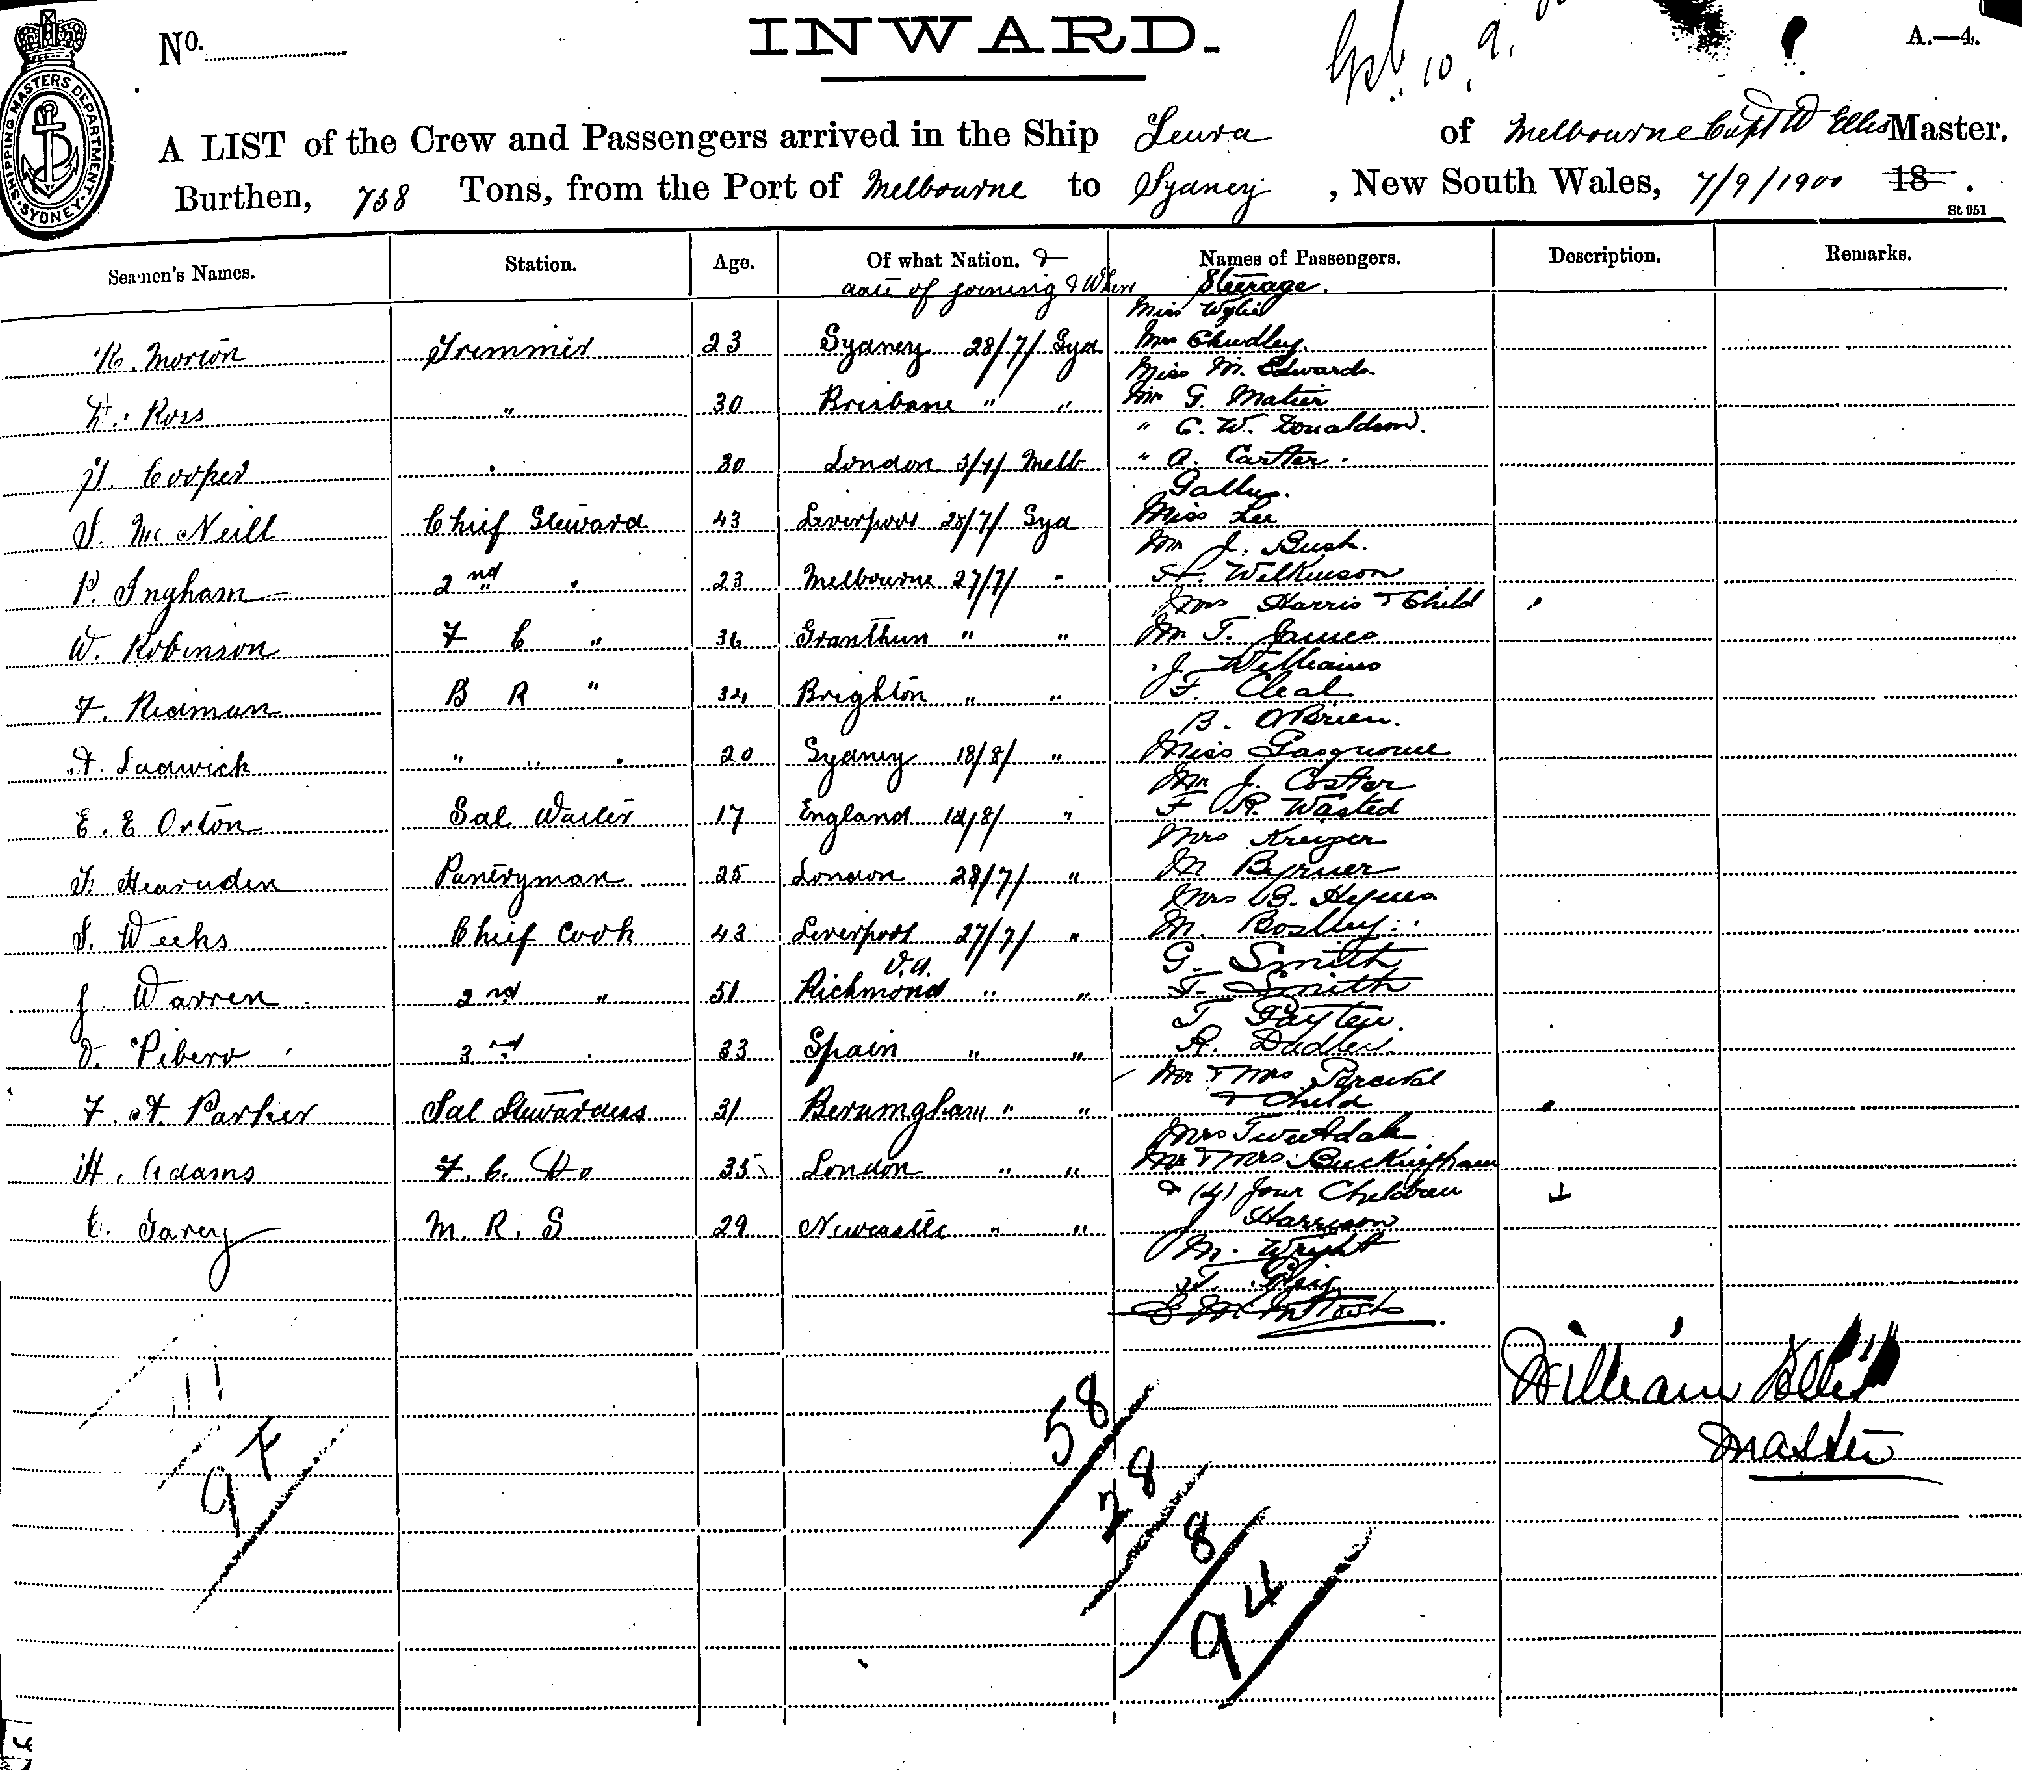 No.
INWARD.
A.—4.
SHIPPING MASTERS DEPARTMENT
SYDNEY
A LIST of the Crew and Passengers arrived in the Ship Leura of Melbourne Capt W Ellis Master.
Burthen, 758 Tons, from the Port of Melbourne to Sydney, New South Wales, 7/9/1900 18 .
St 951
Seamen's Names. Station. Age. Of what Nation. & Names of Passengers. Description. Remarks.
date of joining & Where Steerage.
Miss Wylie
R. Morton Trimmer 23 Sydney 28/7/ Syd Mrs Chudley.
Miss M. Edwards.
Ross " 30 Brisbane " " Mr G. Matier
" C. W. Donaldson.
H. Cooper " 30 London Melb " A. Carter.
S. McNeill Chief Steward 43 Liverpool 28/7/ Syd Miss Lee
Mr J. Bush.
P. Ingham 2nd " 23 Melbourne 27/7/ " Wilkinson
Mrs Harris & Child
W. Robinson F C " 36 " " Mr T. James
" J Williams
F. Redman B R " 34 Brighton " " F. Cleal
B. O'Brien.
A. Ladwick " " " 20 Sydney 18/8/ " Miss
Mr J. Coster
E. E Orton Sal Waiter 17 England 18/8/ " F R. Wasted
Mrs Kruger
Pantryman 25 London 28/7/ " M Byrner
Mrs B. Hynes
S. Weeks Chief Cook 43 Liverpool 27/7/ " M. Boslley
V.A. G. Smith
J. Warren 2nd " 51 Richmond " " T. Smith
T Payten
Pibero 3rd " 33 Spain " " R. Dudley
Mr & Mrs Percival
F. A. Parker Sal Stewardess 31 Berumgham " " & Child
Mrs Tweetdale
H. Adams F. C. Do 35 London " " Mr & Mrs Buckingham
& (4) four Children
C. Tarey M. R. S 29 Newcastle " " J Harrison
M. Wright
William Ellis
Master
58
97
28
8
94